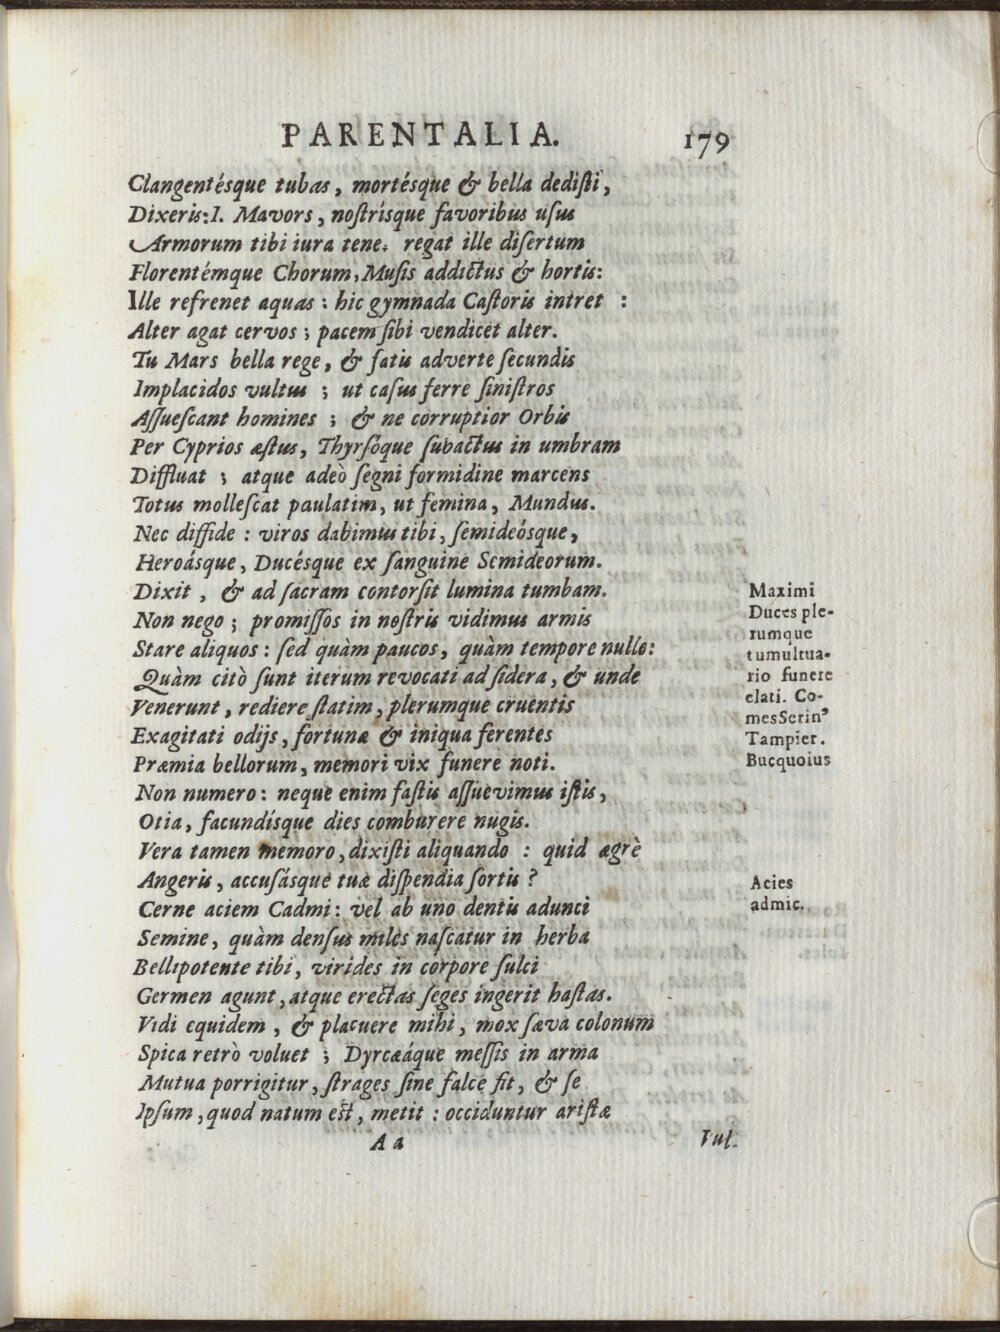 PARENTALIA. 179
Clangentésque tubas, mortésque & bella dedisti,
Dixeris: I. Mavors, nostrísque favoribus usus
Armorum tibi iura tene. regat ille disertum
Florentémque Chorum, Musis addictus & hortis:
Ille refrenet aquas : hic gymnada Castoris intret :
Alter agat cervos ; pacem sibi vendicet alter.
Tu Mars bella rege, & fatis adverte secundis
Implacidos vultus ; ut casus ferre sinistros
Assuescant homines ; & ne corruptior Orbis
Per Cyprios æstus, Thyrsóque subactus in umbram
Diffluat ; atque adeò segni formidine marcens
Totus mollescat paulatim, ut femina, Mundus.
Nec diffide : viros dabimus tibi, semideósque,
Heroásque, Ducésque ex sanguine Semideorum.
Dixit, & ad sacram contorsit lumina tumbam.
Non nego ; promissos in nostris vidimus armis
Stare aliquos : sed quàm paucos, quàm tempore nullo:
Quàm citò sunt iterum revocati ad sidera, & unde
Venerunt, rediere statim, plerumque cruentis
Exagitati odijs, fortunæ & iniqua ferentes
Præmia bellorum, memori vix funere noti.
Non numero : neque enim fastis assuevimus istis,
Otia, facundísque dies comburere nugis.
Vera tamen memoro, dixisti aliquando : quid ægrè
Angeris, accusásque tuæ dispendia sortis ?
Cerne aciem Cadmi : vel ab uno dentis adunci
Semine, quàm densus miles nascatur in herba
Bellipotente tibi, virides in corpore sulci
Germen agunt, atque erectas seges ingerit hastas.
Vidi equidem, & placuere mihi, mox sæva colonum
Spica retrò voluet ; Dyrcæáque messis in arma
Mutua porrigitur, strages sine falce fit, & se
Ipsum, quod natum est, metit : occiduntur aristæ
Aa Vul-
Maximi
Duces ple-
rumque
tumultua-
rio funere
elati. Co-
mes Serin⁹
Tampier.
Bucquoius
Acies
admic.